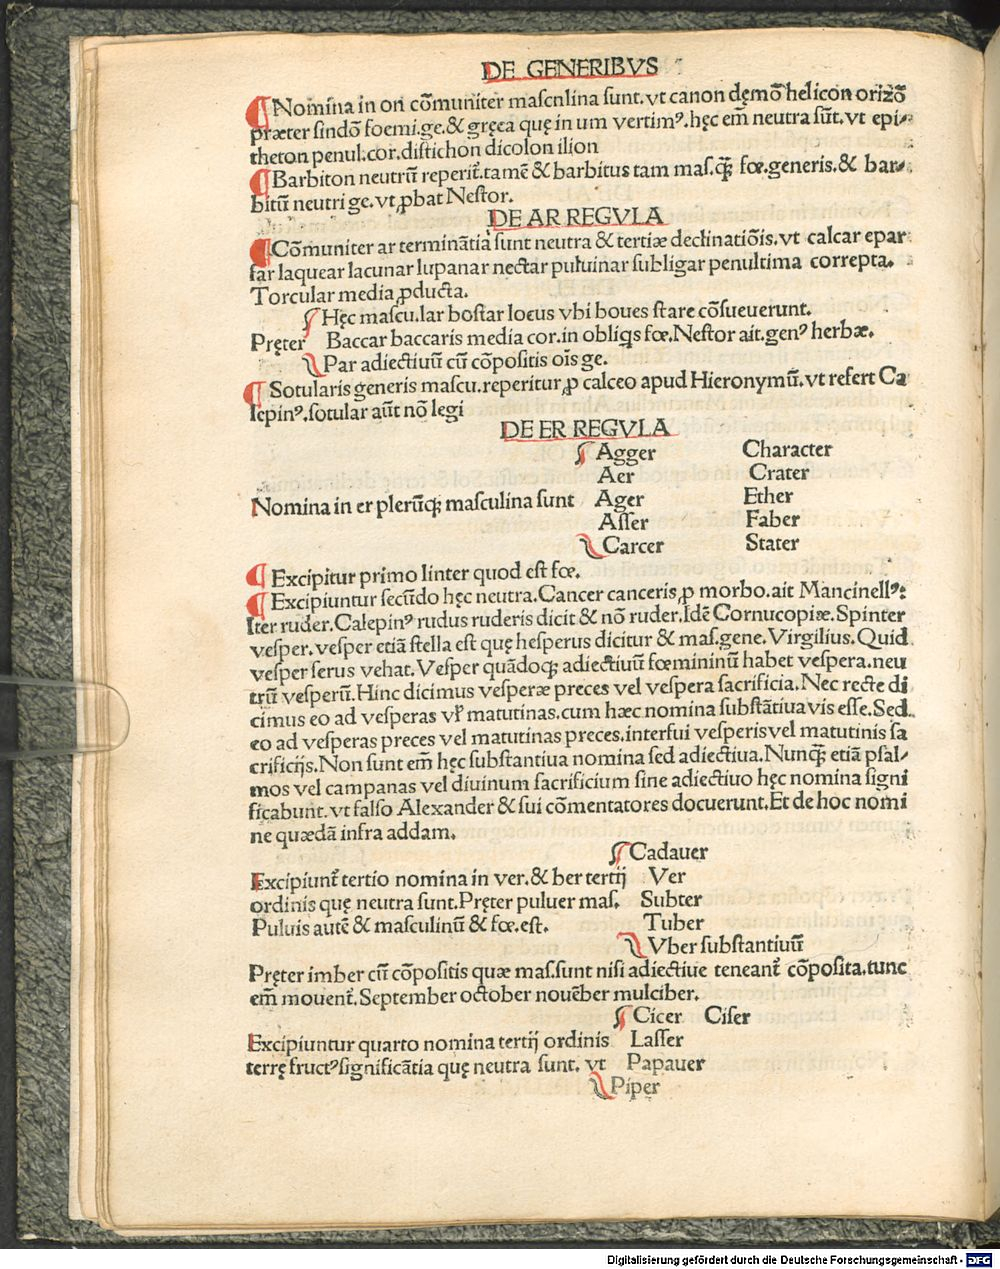 DE GENERIBVS
¶ Nomina in on cōmuniter mascnlina sunt.vt canon dęmō helicon orizō
præter sindō foemi.ge.& gręca quę in um vertimꝰ.hęc em̄ neutra sūt.vt epi⸗
theton penul.cor.distichon dicolon ilion
¶ Barbiton neutrū reperit᷑.tamē & barbitus tam mas.q̄ꝫ fœ.generis.& bar⸗
bitū neutri ge.vt ꝓbat Nestor.
DE AR REGVLA
¶ Cōmuniter ar terminātia sunt neutra & tertiæ declinatiōis.vt calcar epar
far laquear lacunar lupanar nectar puluinar subligar penultima correpta.
Torcular media ꝓducta.
Hęc mascu.lar bostar locus vbi boues stare cōsueuerunt.
Pręter Baccar baccaris media cor.in obliq̇s fœ.Nestor ait.genꝰ herbæ.
Par adiectiuū cū cōpositis oīs ge.
¶ Sotularis generis mascu.reperitur ꝓ calceo apud Hieronymū.vt refert Ca
lepinꝰ.sotular aūt nō legi
DE ER REGVLA
Agger Character
Aer Crater
Nomina in er plerūqꝫ masculina sunt Ager Ether
Asser Faber
Carcer Stater
¶ Excipitur primo linter quod est fœ.
¶ Excipiuntur secūdo hęc neutra.Cancer canceris ꝓ morbo.ait Mancinellꝰ:
Iter ruder.Calepinꝰ rudus ruderis dicit & nō ruder.Idē Cornucopiæ.Spinter
vesper.vesper etiā stella est quę hesperus dicitur & mas.gene.Virgilius.Quid
vesper serus vehat.Vesper quādoqꝫ adiectiuū fœmininū habet vespera.neu
trū vesperū.Hinc dicimus vesperæ preces vel vespera sacrificia.Nec recte di
cimus eo ad vesperas vľ matutinas.cum hæc nomina substātiua vis esse.Sed
eo ad vesperas preces vel matutinas preces.interfui vesperis vel matutinis sa
crificijs.Non sunt em̄ hęc substantiua nomina sed adiectiua.Nunq̄ꝫ etiā psal⸗
mos vel campanas vel diuinum sacrificium sine adiectiuo hęc nomina signi
ficabunt.vt falso Alexander & sui cōmentatores docuerunt.Et de hoc nomi
ne quædā infra addam.
Cadauer
Excipiunt᷑ tertio nomina in ver.& ber tertij Ver
ordinis quę neutra sunt.Pręter puluer mas. Subter
Puluis autē & masculinū & fœ.est. Tuber
Vber substantiuū
Pręter imber cū cōpositis quæ mas.sunt nisi adiectiue teneant᷑ cōposita.tunc
em̄ mouent᷑.September october nouēber mulciber.
Cicer Ciser
Excipiuntur quarto nomina tertij ordinis Lasser
terrę fructꝰ significātia quę neutra sunt. vt Papauer
Piper
Digitalisierung gefördert durch die Deutsche Forschungsgemeinschaft - DFG